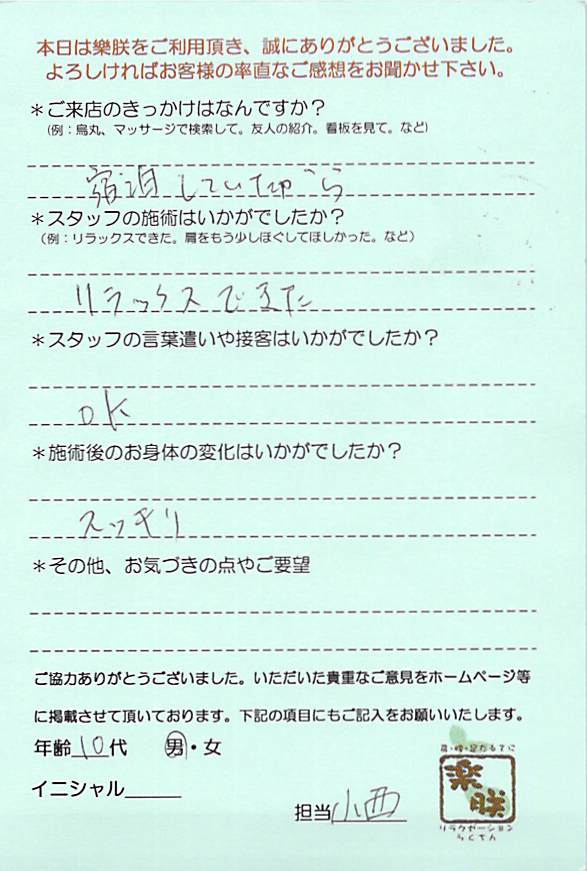 本日は樂朕をご利用頂き、誠にありがとうございました。
よろしければお客様の率直なご感想をお聞かせ下さい。
＊ご来店のきっかけはなんですか？
（例：烏丸、マッサージで検索して。友人の紹介。看板を見て。など）
宿泊していたから
＊スタッフの施術はいかがでしたか？
（例：リラックスできた。肩をもう少しほぐしてほしかった。など）
リラックスできた
＊スタッフの言葉遣いや接客はいかがでしたか？
OK
＊施術後のお身体の変化はいかがでしたか？
スッキリ
＊その他、お気づきの点やご要望
ご協力ありがとうございました。いただいた貴重なご意見をホームページ等
に掲載させて頂いております。下記の項目にもご記入をお願いいたします。
年齢10代 男・女
イニシャル
担当小西
樂
朕
リラクゼーション
らくちん